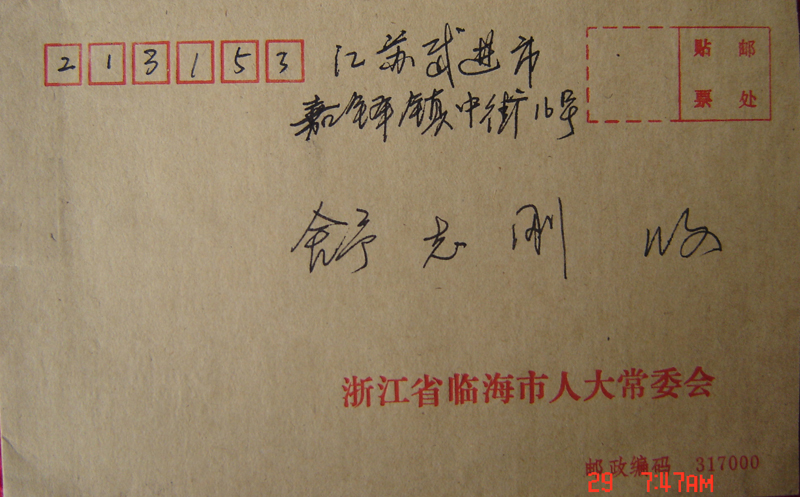 213153
江苏武进市
嘉泽镇中街16号
贴邮
票处
舒志刚 收
浙江省临海市人大常委会
邮政编码 317000
29 7:47AM